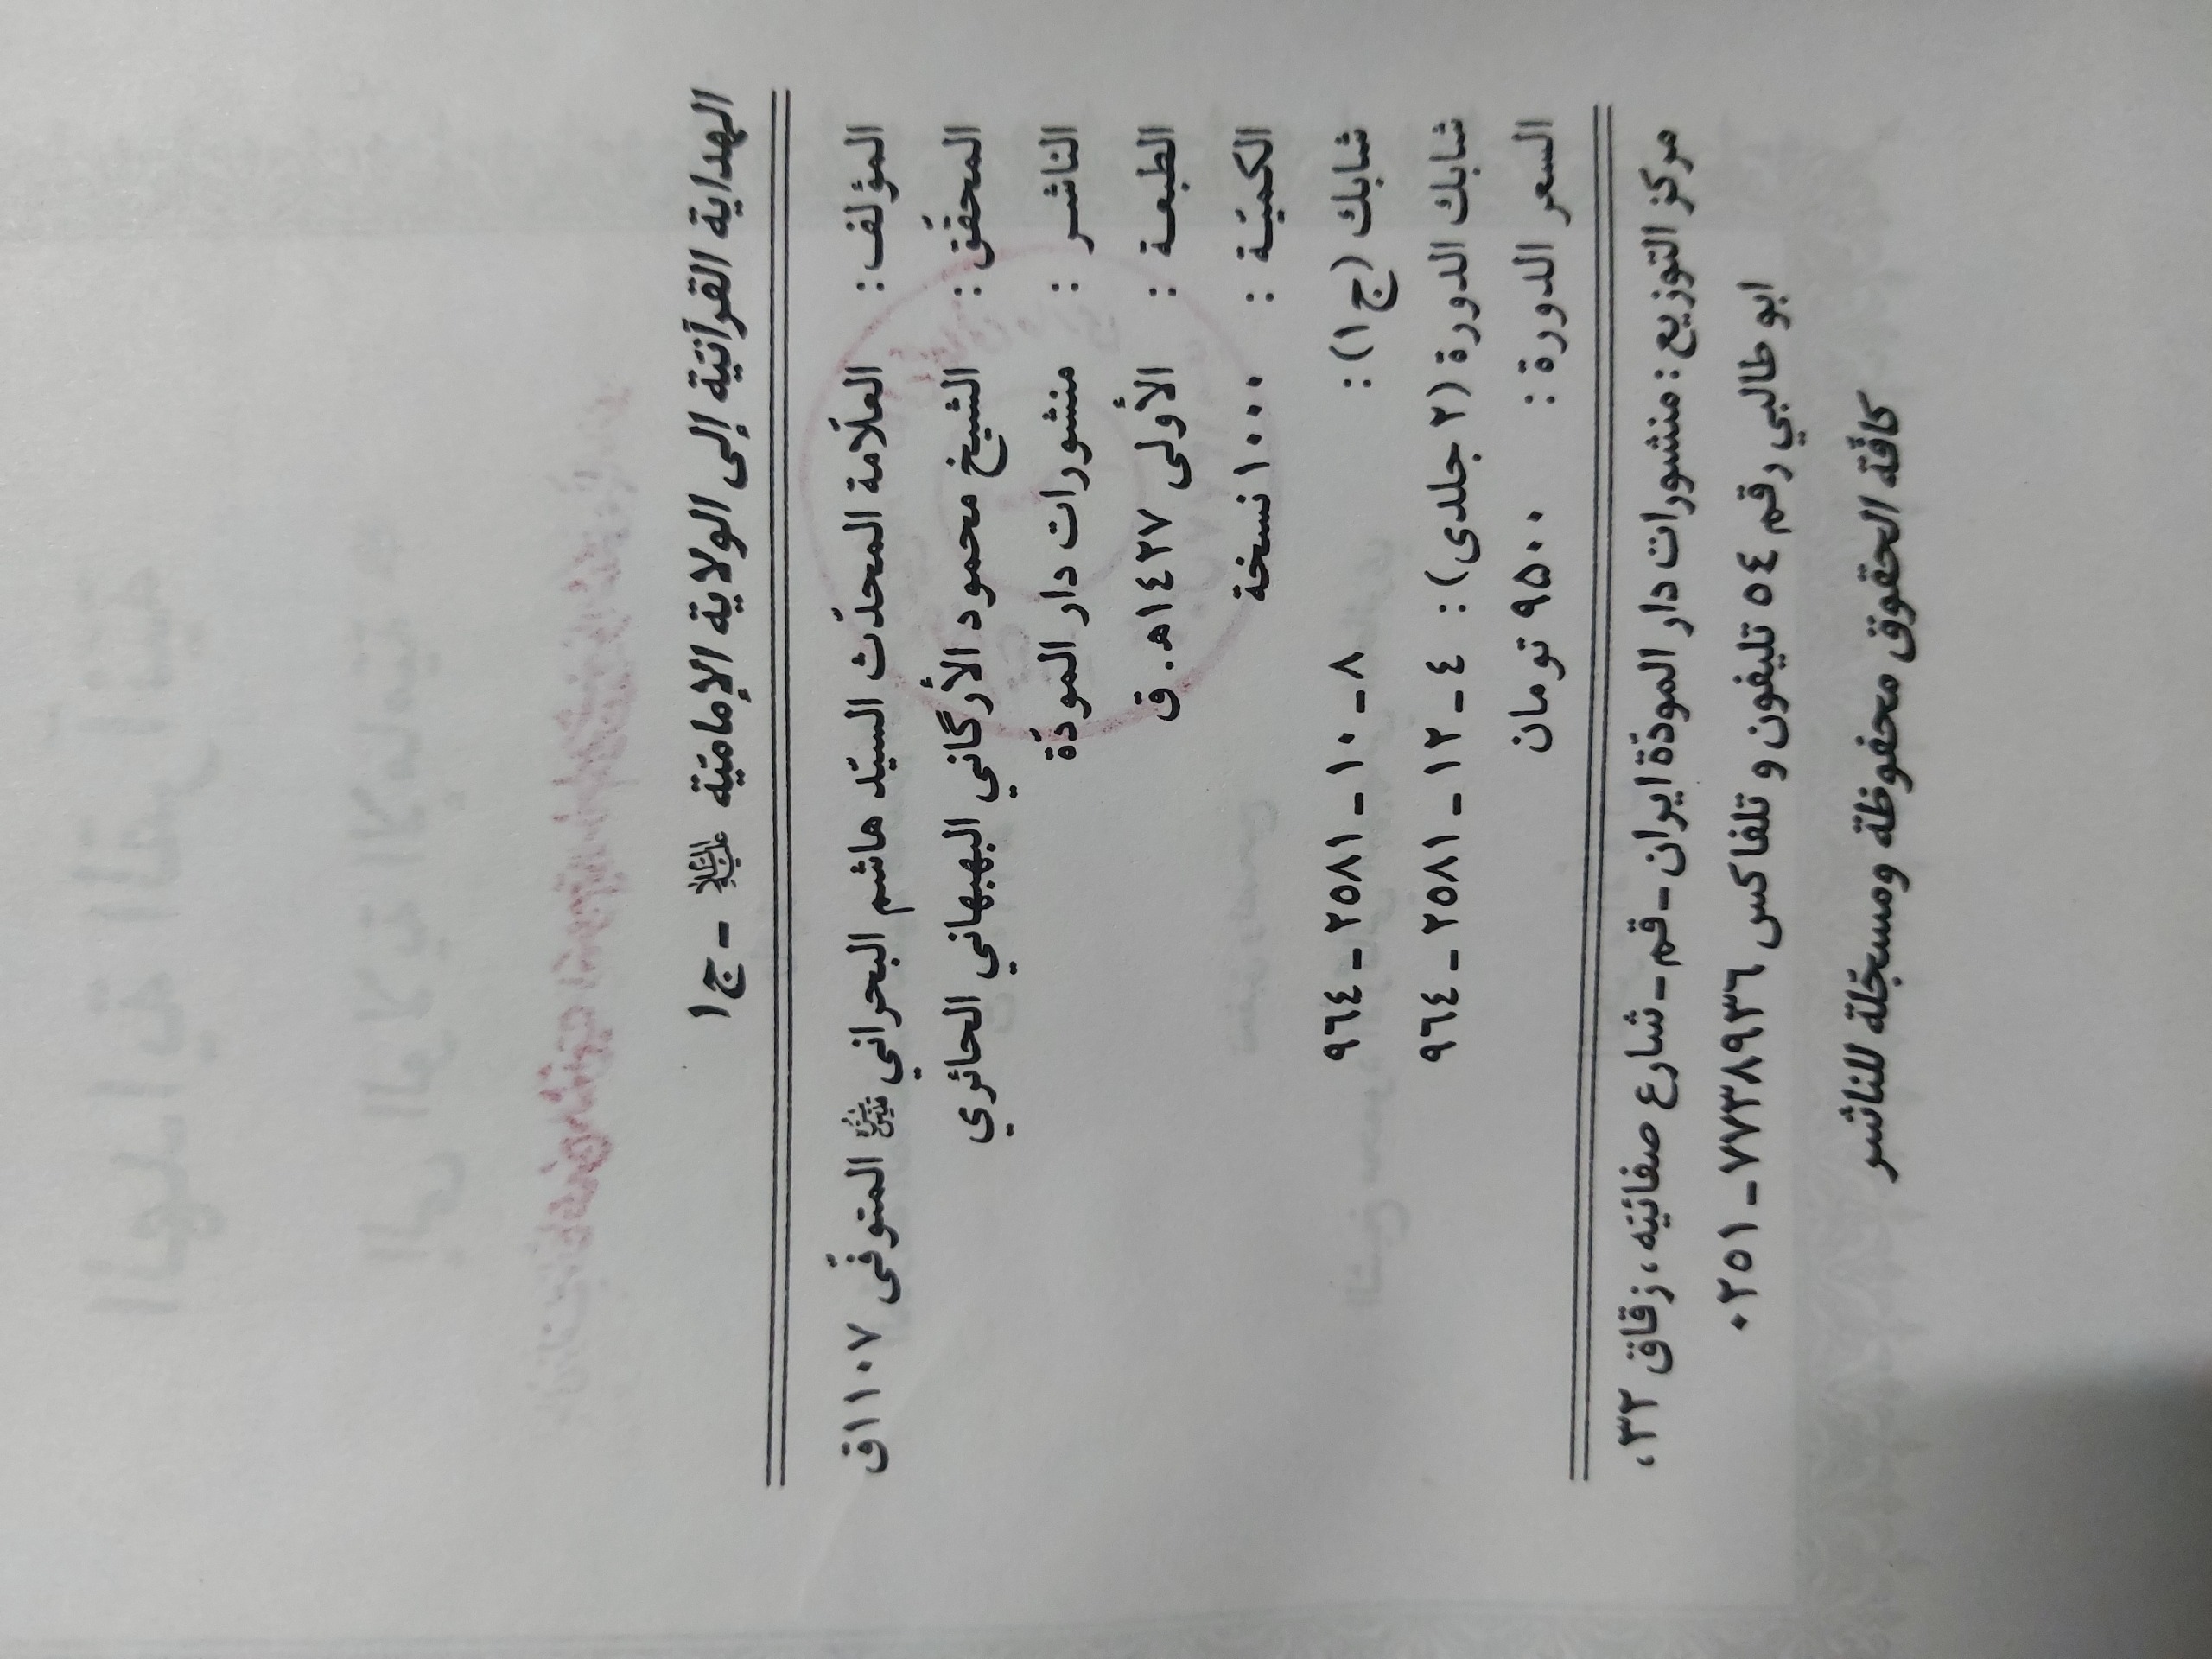 الهداية القرآنيّة إلى الولاية الإماميّة عليه السلام - ج ١
المؤلف : العلّامة المحدّث السيّد هاشم البحراني قدس سره المتوفّى ١١٠٧ق
المحقّق : الشيخ محمود الأرگاني البهبهاني الحائري
الناشر : منشورات دار المودّة
الطبعة : الأولى ١٤٢٧هـ . ق
الكميّة : ١٠٠٠ نسخة
شابك (ج ١) : ٨ - ١٠ - ٢٥٨١ - ٩٦٤
شابك الدورة (٢ جلدى) : ٤ - ١٢ - ٢٥٨١ - ٩٦٤
السعر الدورة : ٩٥٠٠ تومان
مركز التوزيع : منشورات دار المودّة ايران - قم - شارع صفائيّه ، زقاق ٣٢ ،
ابو طالبي رقم ٥٤ تليفون و تلفاكس ٧٧٣٨٩٣٦ - ٠٢٥١
كافّة الحقوق محفوظة ومسجّلة للناشر